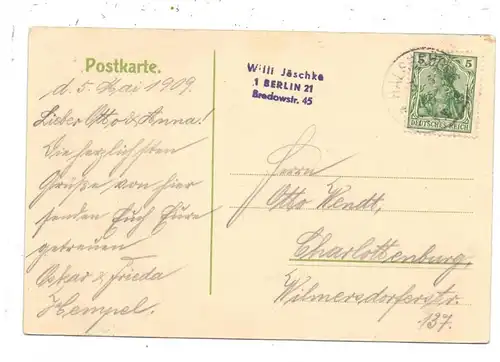 Postkarte.
d. 5. Mai 1909.
Lieber Otto & Anna!
Die herzlichsten
Grüße von hier
senden Euch Eure
getreuen
Oskar & Frieda
Hempel.
Willi Jäschke
1 BERLIN 21
Bredowstr. 45
5
DEUTSCHES REICH
Herrn
Otto Wendt,
Charlottenburg,
Wilmersdorferstr.
137.